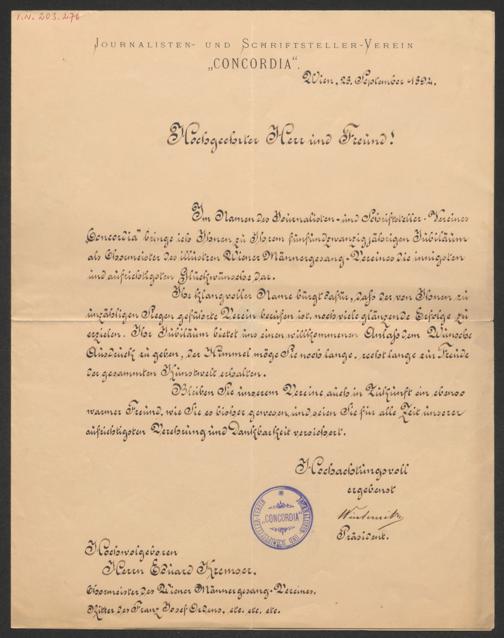 I.N. 203.276
JOURNALISTEN- UND SCHRIFTSTELLER-VEREIN
„CONCORDIA“.
Wien, 23. September 1894.
Hochgeehrter Herr und Freund!
Im Namen des Journalisten- und Schriftsteller-Vereines
„Concordia“ bringe ich Ihnen zu Ihrem fünfundzwanzigjährigen Jubiläum
als Chormeister des illustren Wiener Männergesang-Vereines die innigsten
und aufrichtigsten Glückwünsche dar.
Ihr klangvoller Name bürgt dafür, daß der von Ihnen zu
unzähligen Siegen geführte Verein berufen ist, noch viele glänzende Erfolge zu
erzielen. Ihr Jubiläum bietet uns einen willkommenen Anlaß dem Wunsche
Ausdruck zu geben, der Himmel möge Sie noch lange, recht lange zur Freude
der gesammten Kunstwelt erhalten.
Bleiben Sie unserem Vereine auch in Zukunft ein ebenso
warmer Freund, wie Sie es bisher gewesen und seien Sie für alle Zeit unserer
aufrichtigsten Verehrung und Dankbarkeit versichert.
Hochachtungsvoll
ergebenst
JOURNALISTEN UND SCHRIFTSTELLER-VEREIN
„CONCORDIA“
Präsident.
Hochwolgeboren
Herrn Eduard Kremser,
Chormeister des Wiener Männergesang-Vereines,
Ritter des Franz Josef Ordens, etc. etc. etc.